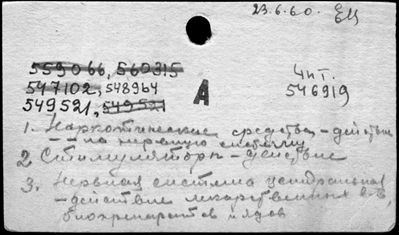 23.6.60. ЕЦ
559066, 560315
547102, 548964
549521, 549521
А
Чит.
546919
1. Наркотические средства – действие
– на нервную систему
2 Стимуляторы – действие
3. Нервная система центральная
– действие лекарственных в-в,
биопрепаратов и ядов